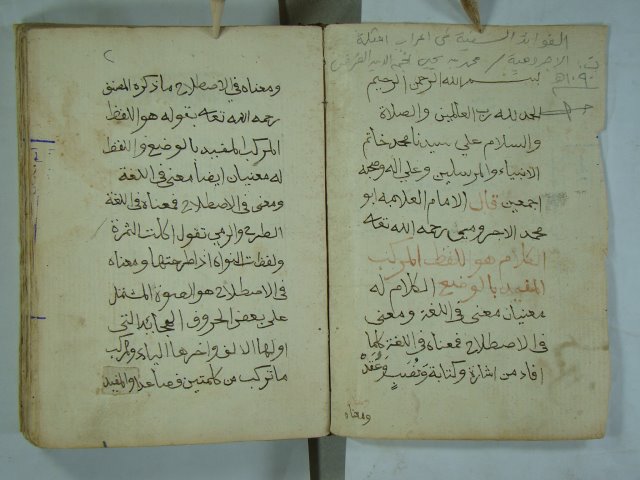 الفوائد السنية في اعراب امثلة
الاجرومية / محمد بن يحيى
بسم الله الرحمن الرحيم
الحمد لله رب العالمين والصلاة
والسلام علي سيدنا محمد خاتم
الانبياء والمرسلين وعلي اله وصحبه
اجمعين قال الامام العلامه ابو
محمد الاجرومي رحمه الله تعه
الكلام هو اللفظ المركب
المفيد بالوضع الكلام له
معنيان معنى في اللغة ومعنى
في الاصطلاح فمعناه في اللغة كلما
افاد من اشارة وكتابة ونصب وعقد
ومعناه
٢
ومعناه في الاصطلاح ما ذكره المصنف
رحمه الله تعه بقوله هو اللفظ
المركب المفيد بالوضع واللفظ
له معنيان ايضا معنى في اللغة
ومعنى في الاصطلاح فمعناه في اللغة
الطرح والرمي تقول اكلت التمرة
ولفظت النواه اذا طرحتها ومعناه
في الاصطلاح هو الصوت المشتمل
على بعض الحروف الهجائية التي
اولها الالف واخرها الياء والمركب
ما تركب من كلمتين فصاعدا والمفيد